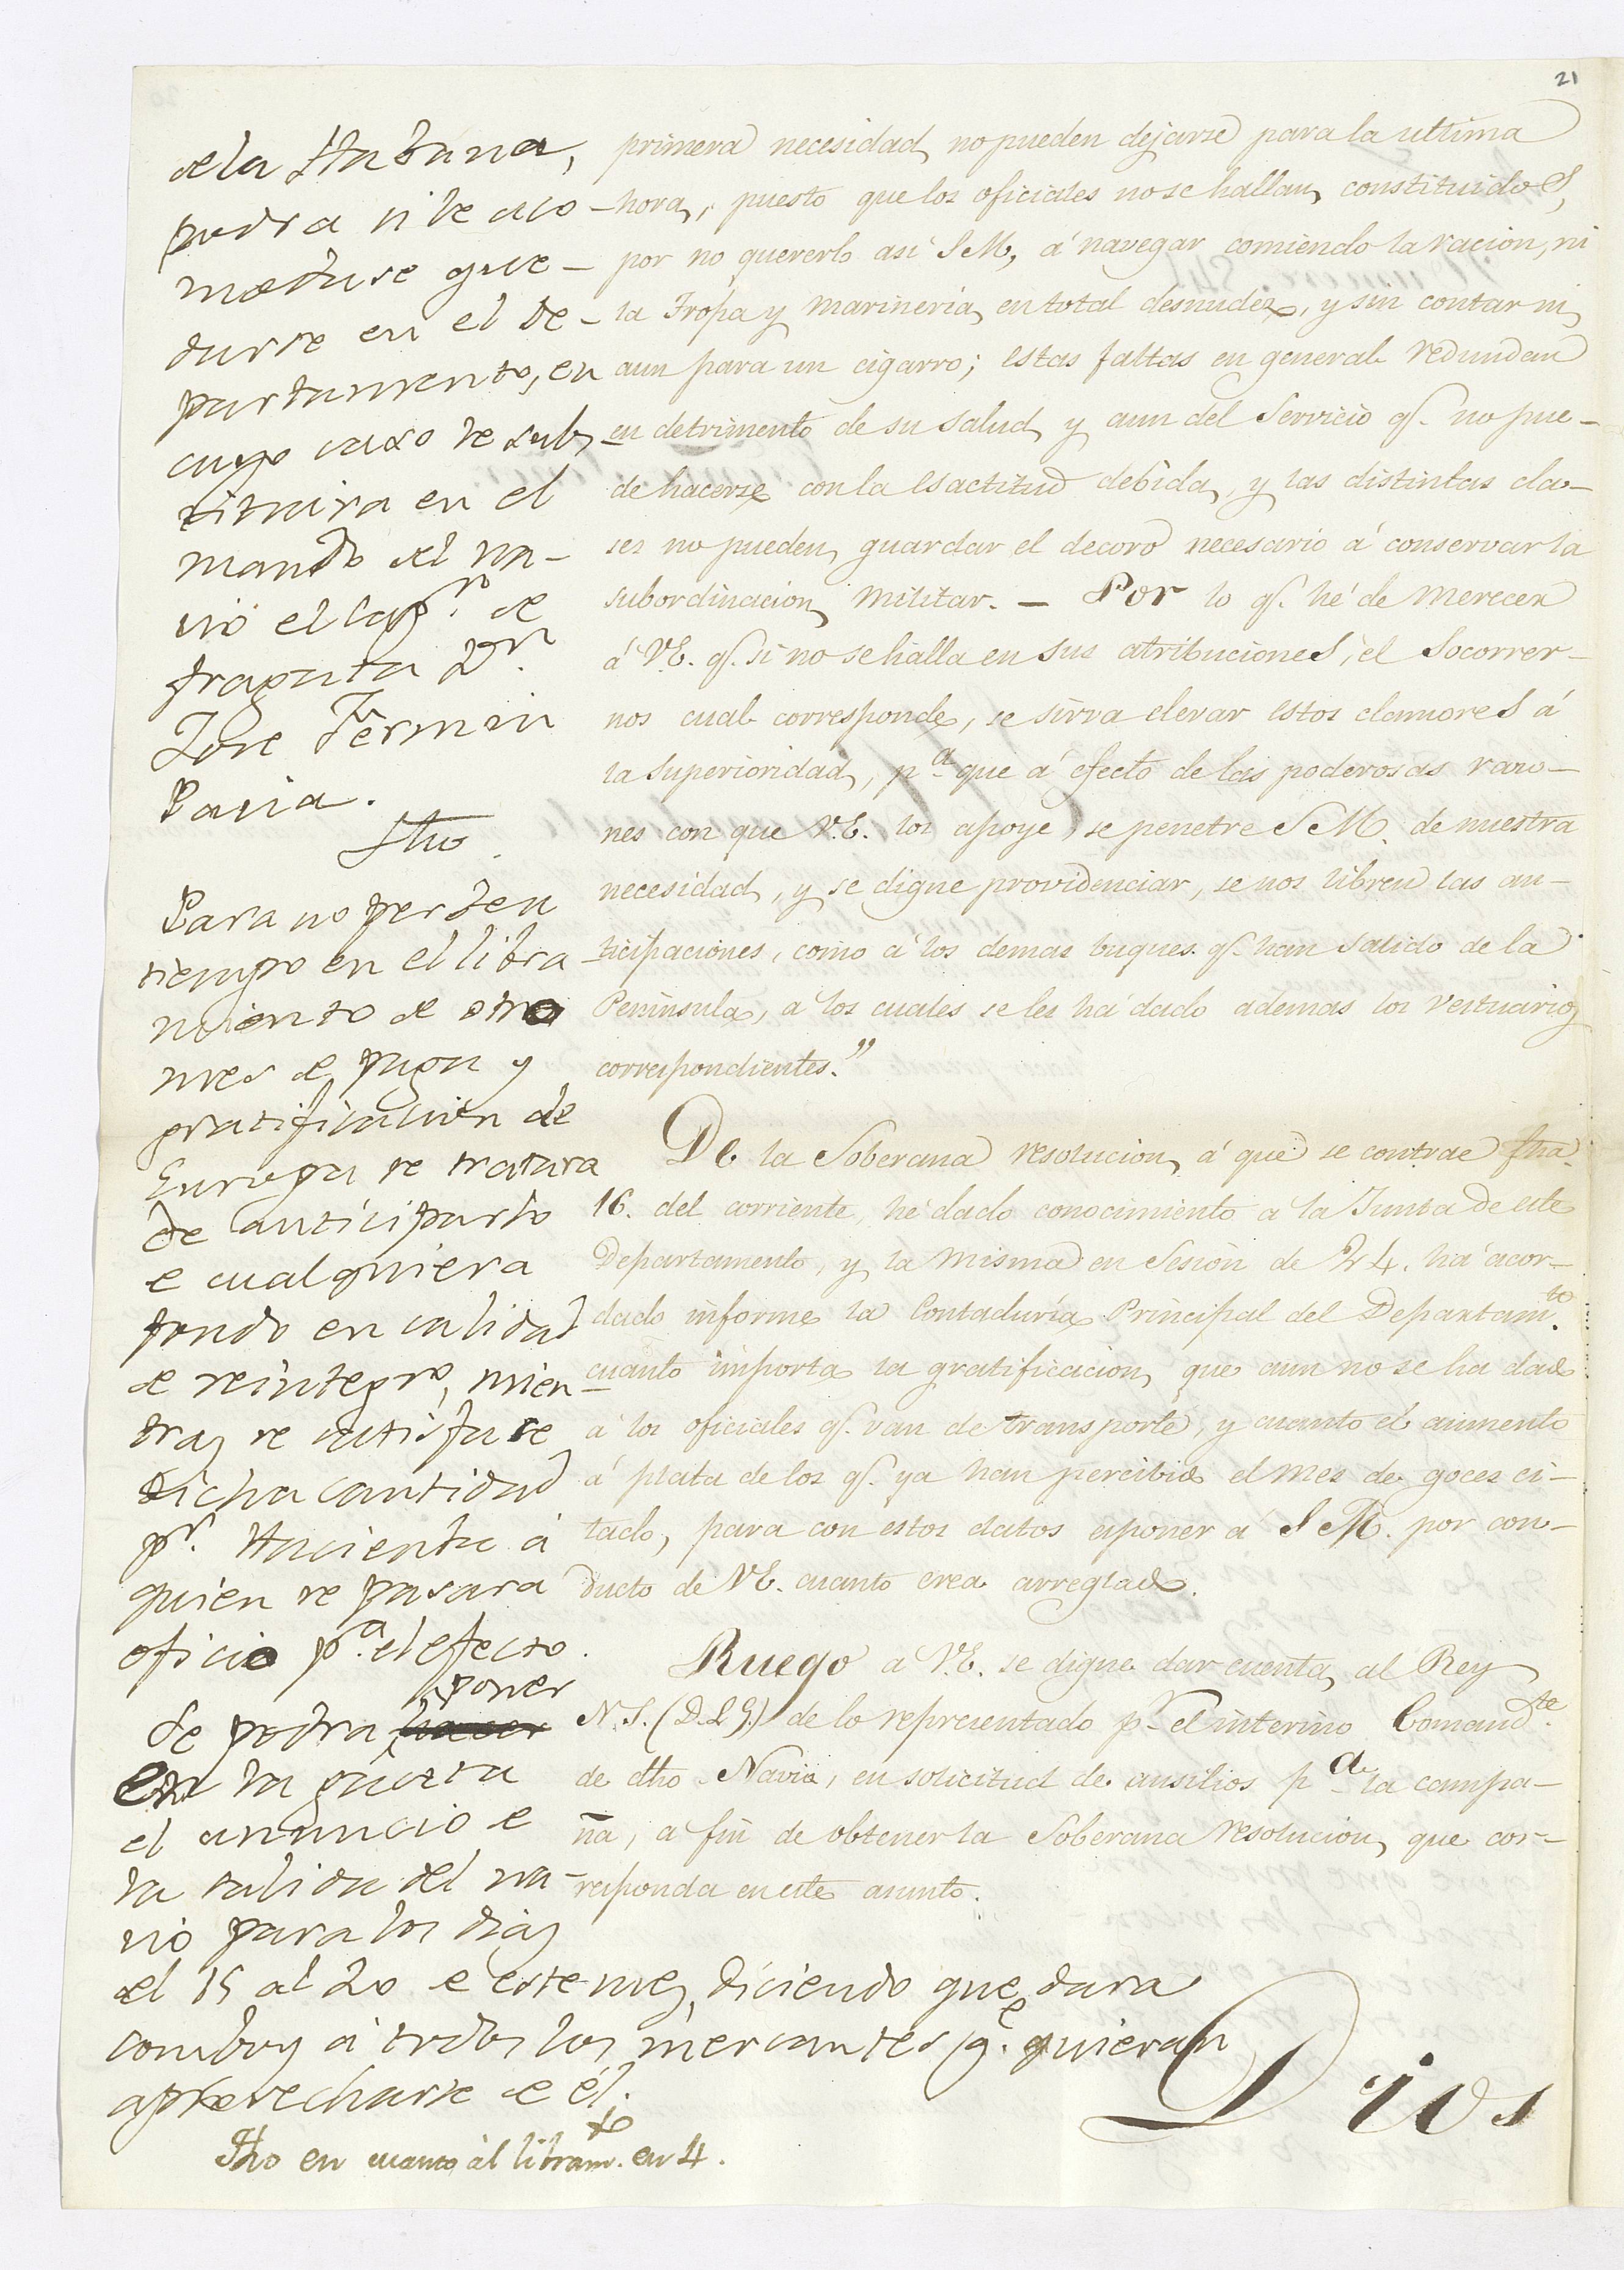 21
de la Habana,
podra si le aco-
modase que-
darse en el De-
partamento, en
cuyo caso le subs-
tituira en el
mando del na-
vio el Cap.n de
fragata D.n
Jose Fermin
Pavia.
Fho.
Para no perder
tiempo en el libra-
miento de otro
mes de paga y
gratificacion de
Europa se tratara
de anticiparlo
de cualquiera
fondo en calidad
de reintegro, mien-
tras se satisface
dicha cantidad
p.r Hacienda á
quien se pasara
oficio p.a el efecto.
poner
Se podra hacer
en la gaceta
el anuncio de
la salida del na-
vio para los dias
del 15 al 20 de este mes, diciendo que dara
comboy á todos los mercantes q.e quieran
aprovecharse de él.
Fho en cuanto al libram.to en 4.
primera necesidad no pueden dejarse para la ultima
hora, puesto que los oficiales no se hallan constituidos,
por no quererlo asi S M, á navegar comiendo la racion, ni
la Tropa y Marineria en total desnudez, y sin contar ni
aun para un cigarro; estas faltas en general redundan
en detrimento de su salud y aun del Servicio q.e no pue-
de hacerse con la esactitud debida, y las distintas cla-
ses no pueden guardar el decoro necesario á conservar la
subordinacion Militar. — Por lo q.e hé de merecer
á V.E. q.e si no se halla en sus atribuciones, el Socorrer-
nos cual corresponde, se sirva elevar estos clamores á
la Superioridad, p.a que á efecto de las poderosas razo-
nes con que V.E. los apoye, se penetre S M. de nuestra
necesidad, y se digne providenciar, se nos libren las an-
ticipaciones, como á los demas buques q.e han salido de la
Peninsula, a los cuales se les há dado ademas los vestuarios
correspondientes."
De la Soberana resolucion á que se contrae fha
16. del corriente, hé dado conocimiento a la Junta de este
Departamento, y la misma en Sesion de 24. há acor-
dado informe la Contaduría Principal del Departam.to
cuanto importa la gratificacion que aun no se ha dado
á los oficiales q.e van de transporte, y cuanto el aumento
á plata de los q.e ya han percibido el mes de goces ci-
tado, para con estos datos esponer á S M. por con-
ducto de V.E. cuanto crea arreglado.
Ruego a V.E. se digne dar cuenta al Rey
N.S. (D.L.G.) de lo representado p.r el interino Comand.te
de dho Navio, en solicitud de ausilios p.a la campa-
ña, a fin de obtener la Soberana resolucion que cor-
responda en este asunto.
Dios